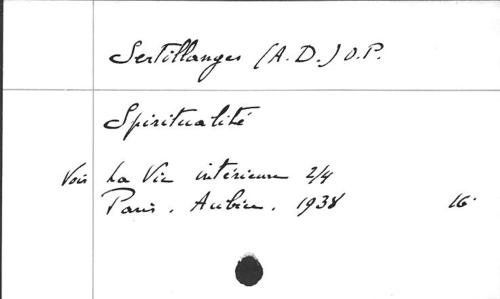 Sertillanges (A.D.) O.P.
Spiritualité
Voir La Vie intérieure 2/4
Paris. Aubier. 1938 16°